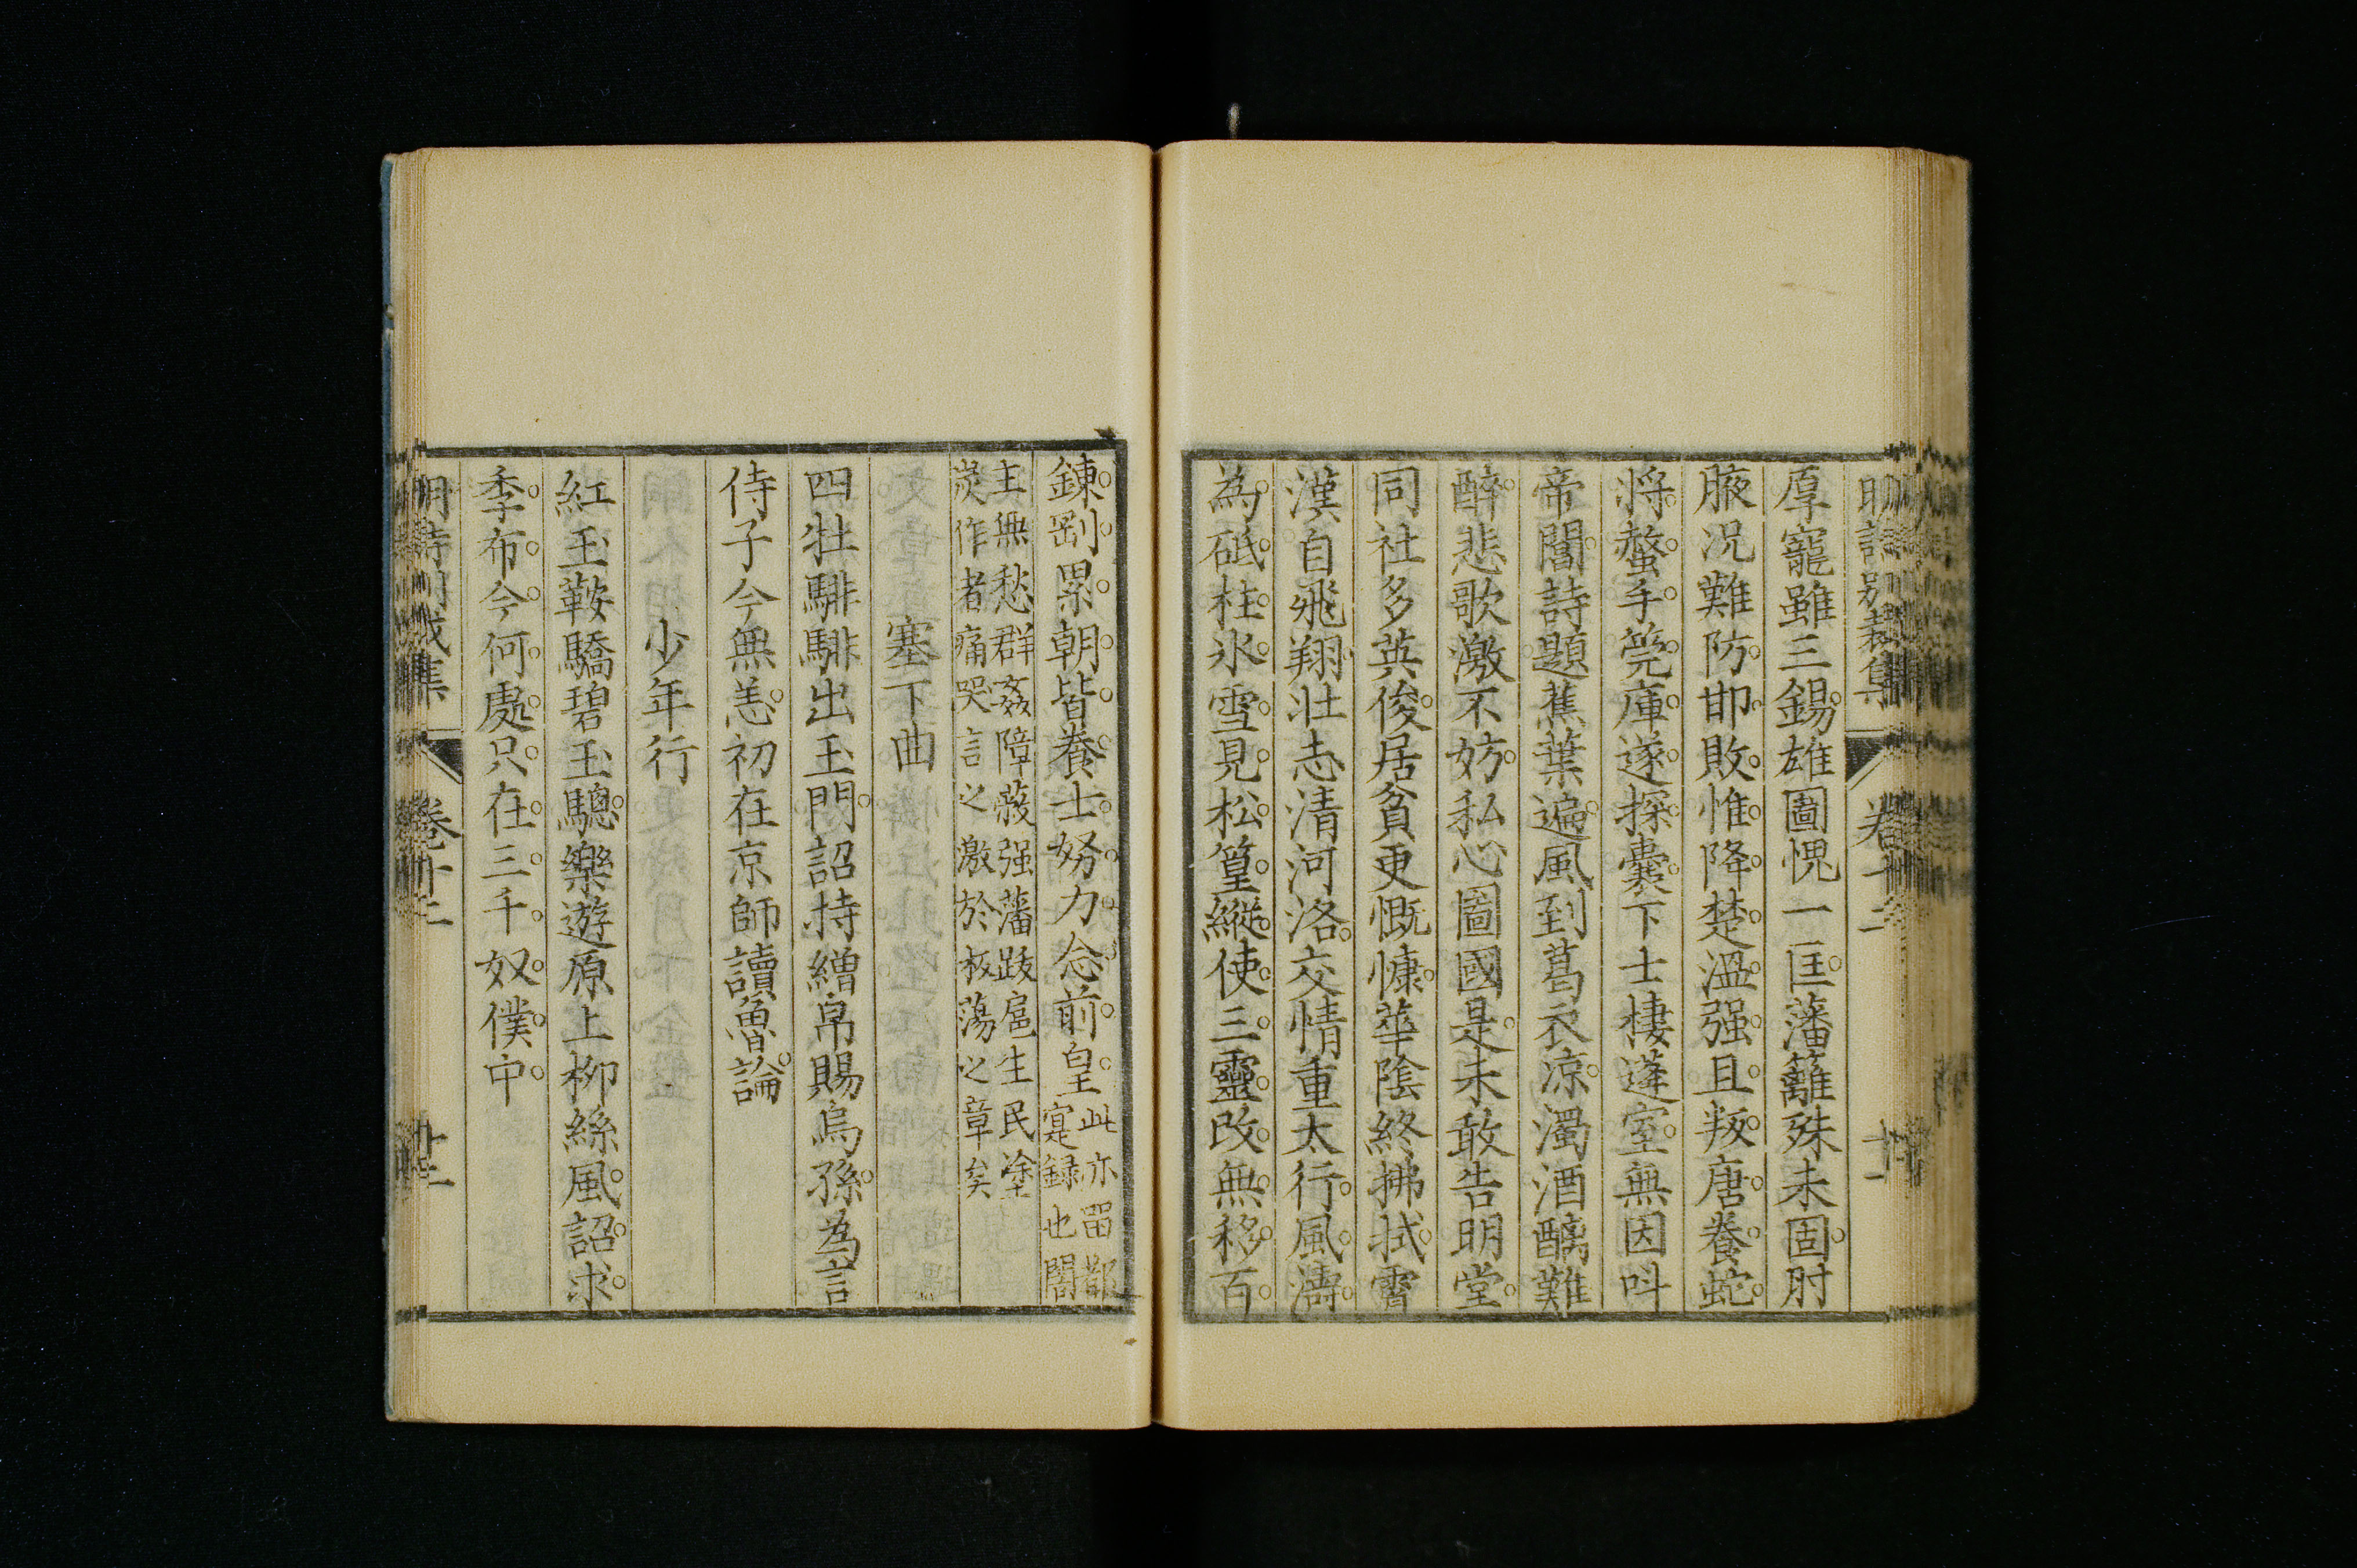 明詩別裁集 卷十二 十一
厚寵雖三錫雄圖愧一匡藩籬殊未固肘
腋况難防邯敗惟降楚溫强且叛唐養蛇
將螫手筦庫遂探囊下士棲蓬室無因呌
帝閽詩題蕉葉遍風到葛衣涼濁酒醻難
醉悲歌激不妨私心圖國是未敢告明堂
同社多英俊居貧更慨慷華陰終拂拭霄
漢自飛翔壯志清河洛交情重太行風濤
為砥柱氷雪見松篁縱使三靈改無移百
鍊剛累朝皆養士努力念前皇此亦畱都
寔録也闇
主無愁群姦障蔽强藩跋扈生民塗
炭作者痛哭言之激於板蕩之章矣
塞下曲
四牡騑騑出玉門詔持繒帛賜烏孫為言
侍子今無恙初在京師讀魯論
少年行
紅玉鞍驕碧玉驄樂遊原上柳絲風詔求
季布今何處只在三千奴僕中
明詩別裁集 卷十二 十二